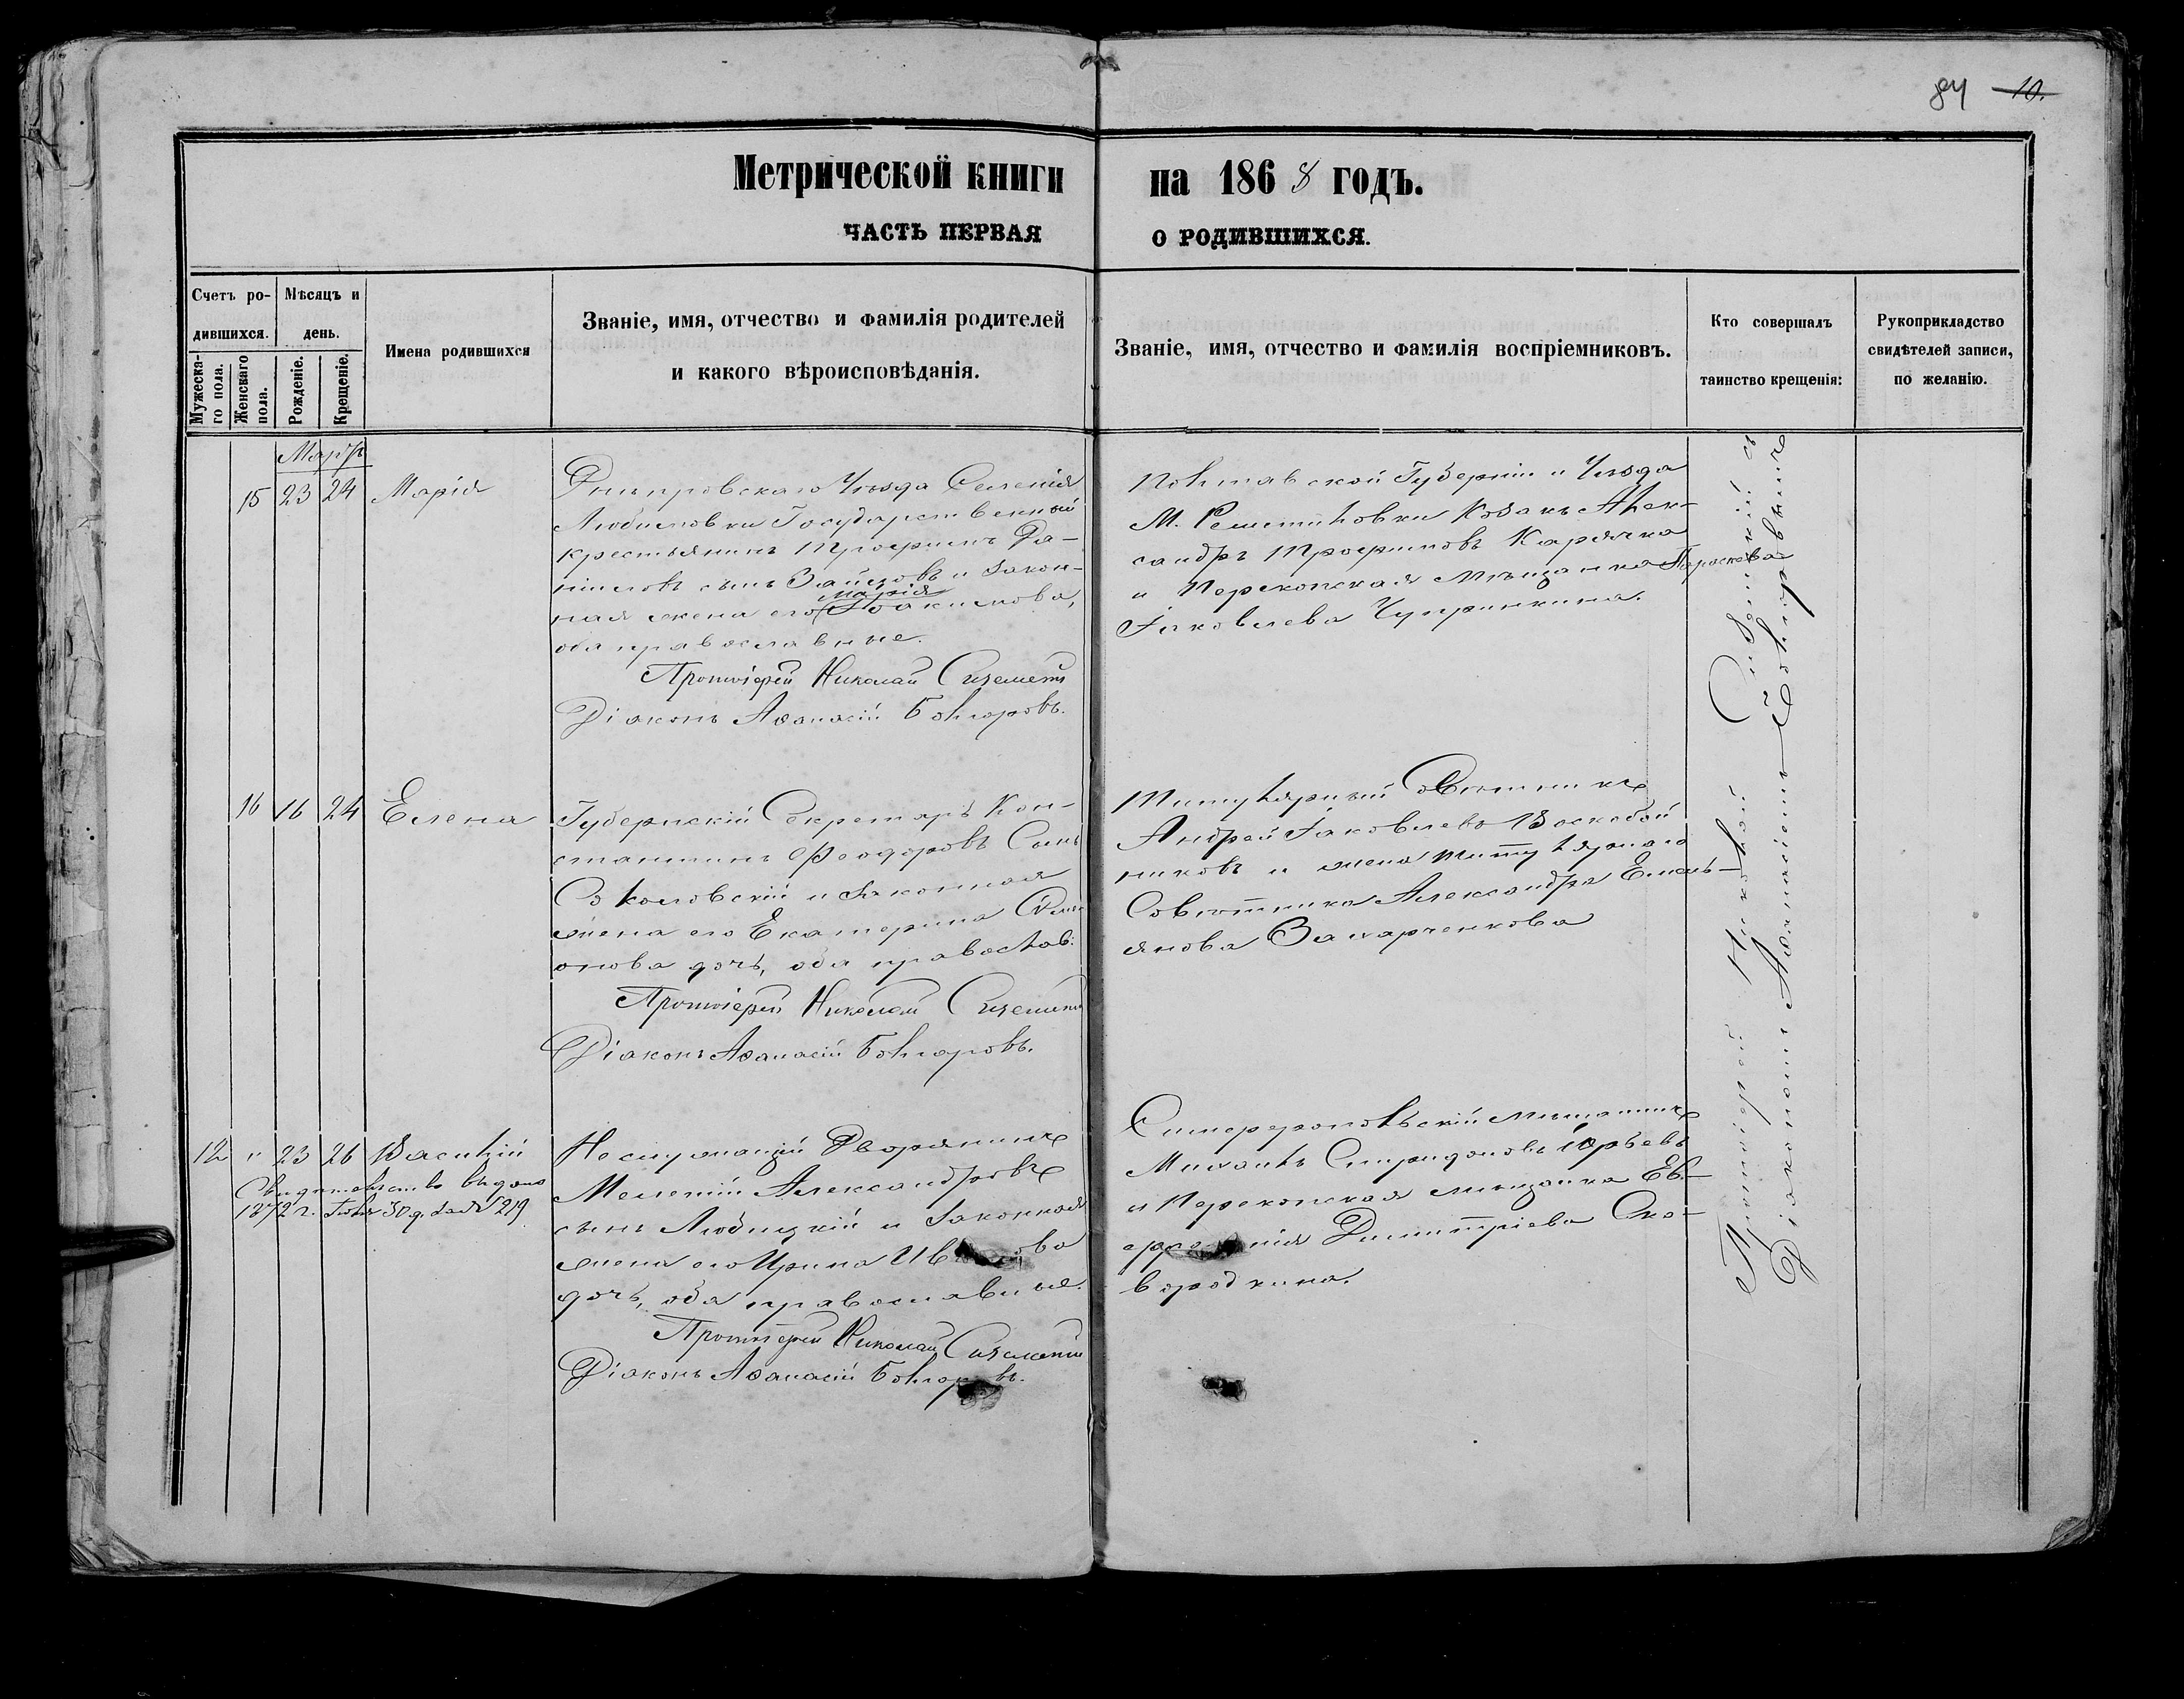 84 10.
Метрической книги на 1868 годъ.
ЧАСТЬ ПЕРВАЯ О РОДИВШИХСЯ.
Счетъ ро-
дившихся.
Мужеска-
го пола.
Женскаго
пола.
Мѣсяцъ и
день.
Рожденіе.
Крещеніе.
Имена родившихся
Званіе, имя, отчество и фамилія родителей
и какого вѣроисповѣданія.
Званіе, имя, отчество и фамилія воспріемниковъ.
Кто совершалъ
таинство крещенія:
Рукоприкладство
свидѣтелей записи,
по желанію.
Мартъ
15 23 24 Марія
Днѣпровскаго Уѣзда Селенія
Любимовки Государственный
крестьянинъ Трофимъ Да-
ниловъ сынъ Зайцовъ и закон-
Марія
ная жена его Іоакимова,
оба православные.
Протоіерей Николай
Діаконъ Аѳанасій Болгаровъ.
Полтавской Губерніи и Уѣзда
М. Решетиловки Козакъ Алек-
сандръ Трофимовъ Карячка
и Перекопская Мѣщанка Параскева
Іаковлева Чупринкина.
16 16 24 Елена
Губернскій Секретарь Кон-
стантинъ Ѳеодоровъ Сынъ
Соколовскій и Законная
жена его Екатерина
онова дочь, оба православ:
Протоіерей Николай
Діаконъ Аѳанасій Болгаровъ.
Титулярный Совѣтникъ
Андрей Іаковлевъ Воскобой
никовъ и жена Титулярнаго
Совѣтника Александра Емель-
янова Захарченкова
12 " 23 26 Василій
Свидѣтельство выдано
1872 г. Іюля 30 д. за № 219
Неслужащій Дворянинъ
Мелетій Александровъ
сынъ Любицкій и Законная
жена его Ирина
дочь, оба православные.
Протоіерей Николай
Діаконъ Аѳанасій Болгаровъ.
Симферопольскій мѣщанинъ
Михаилъ Спиридоновъ Юрьевъ
и Перекопская мѣщанка Ев-
Димитріева Ско-
вородкина.
Протоіерей Николай съ
Діакономъ Аѳанасіемъ Болгаровымъ